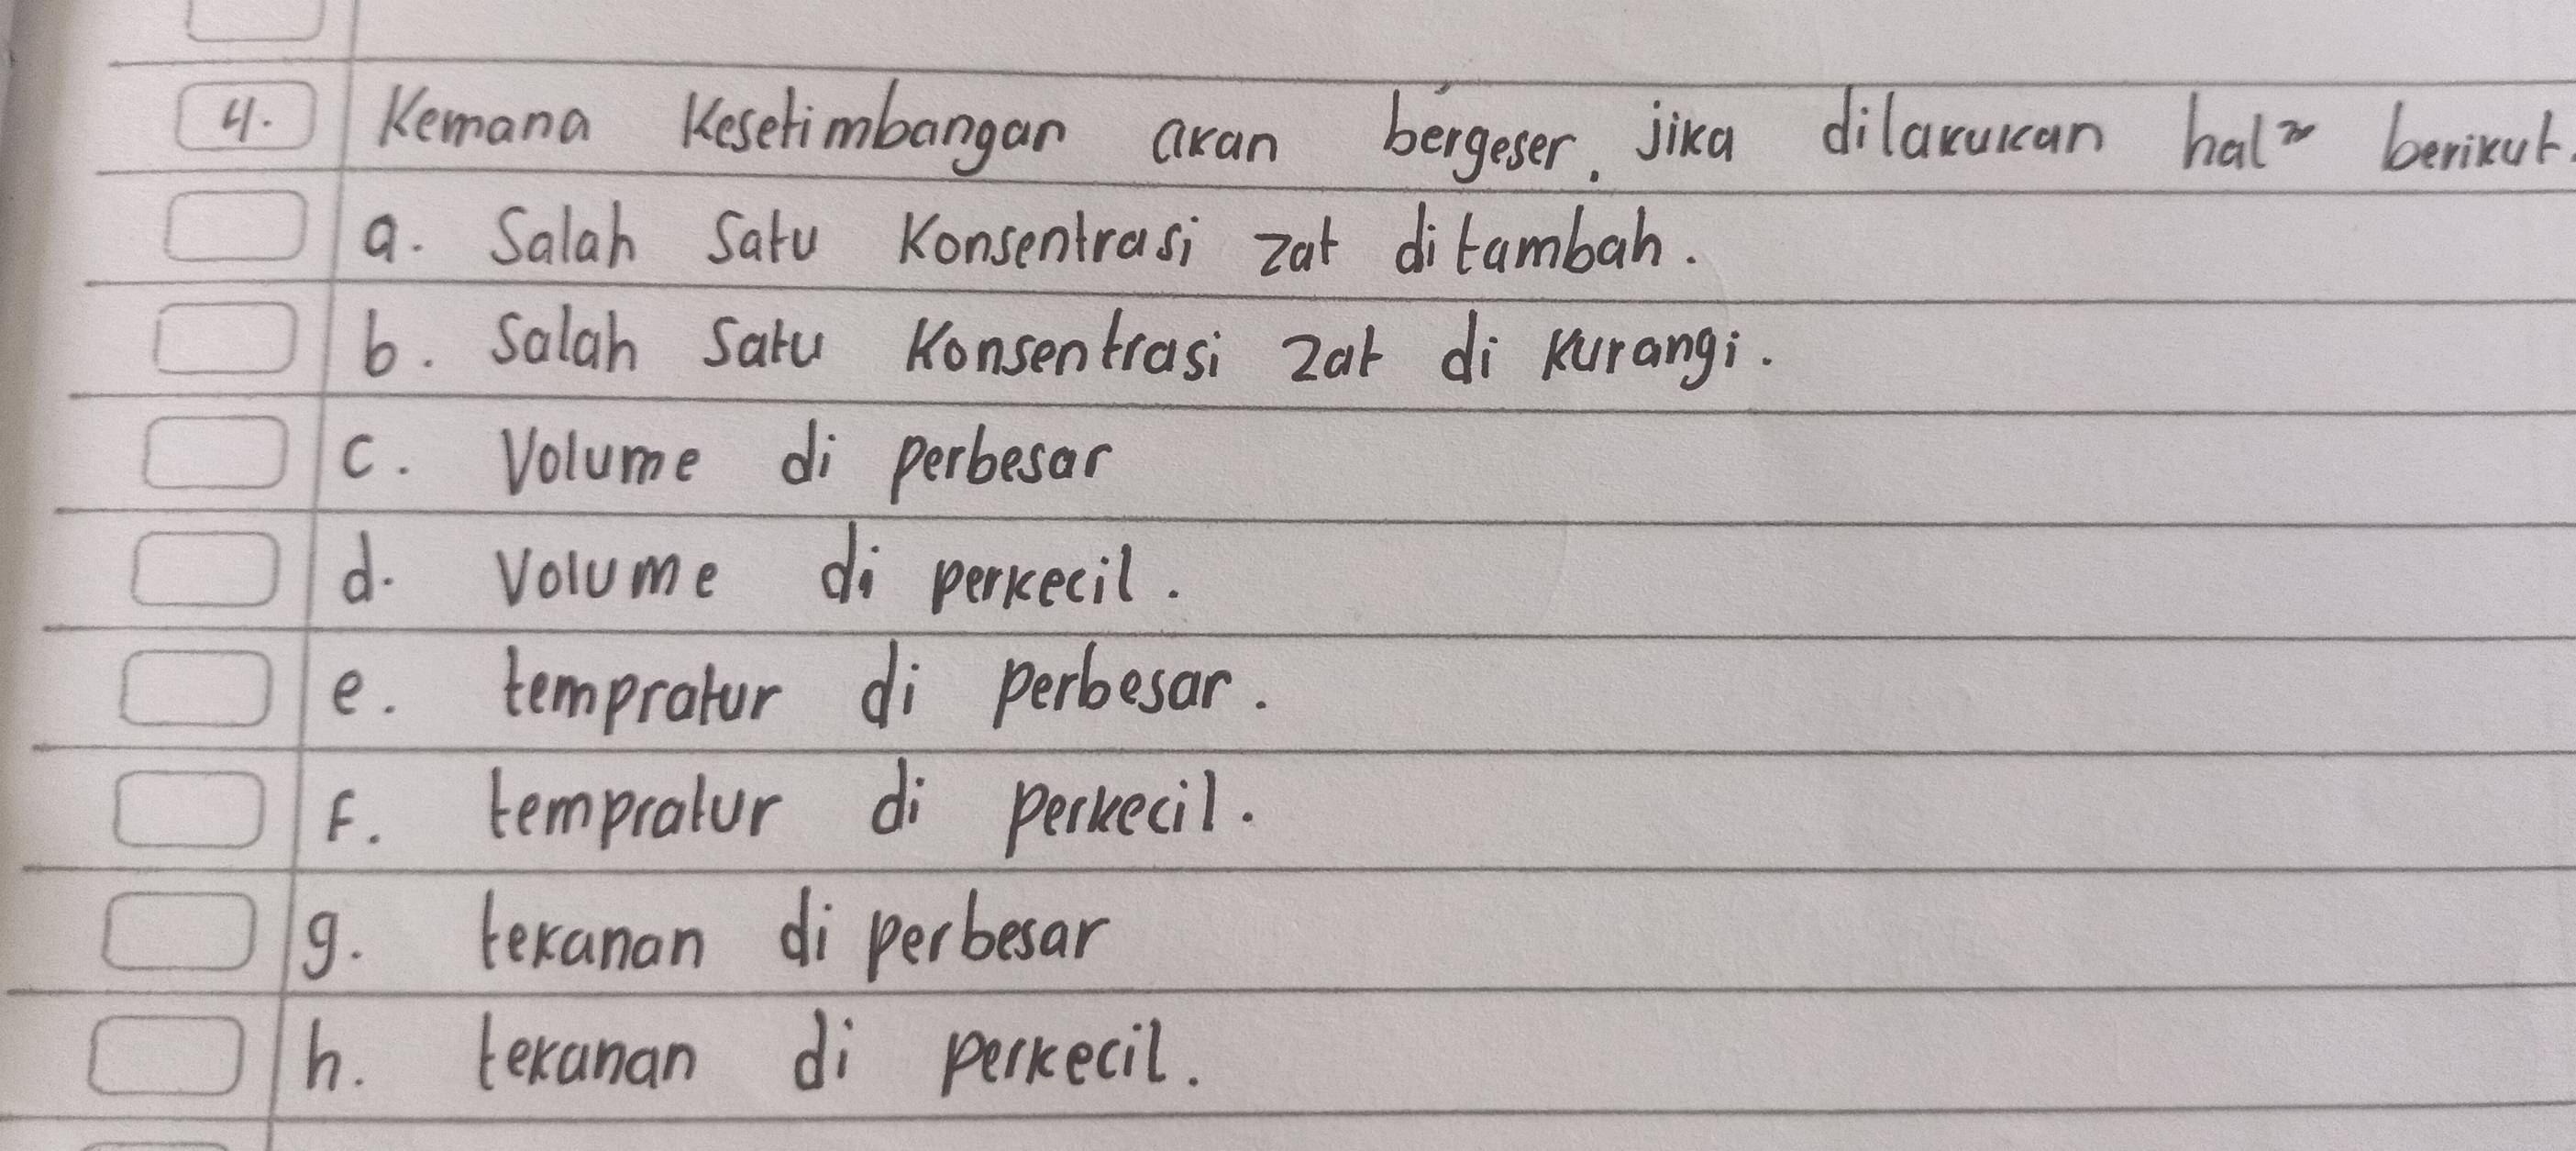 4. Kemana Kesetimbangan akan bergeser, jika dilakukan hal" berikut.
a. Salah Satu Konsentrasi zat ditambah.
b. Salah Satu Konsentrasi zat di kurangi.
c. Volume di perbesar
d. Volume di perkecil.
e. tempratur di perbesar.
f. tempratur di perkecil.
g. tekanan di perbesar
h. tekanan di perkecil.